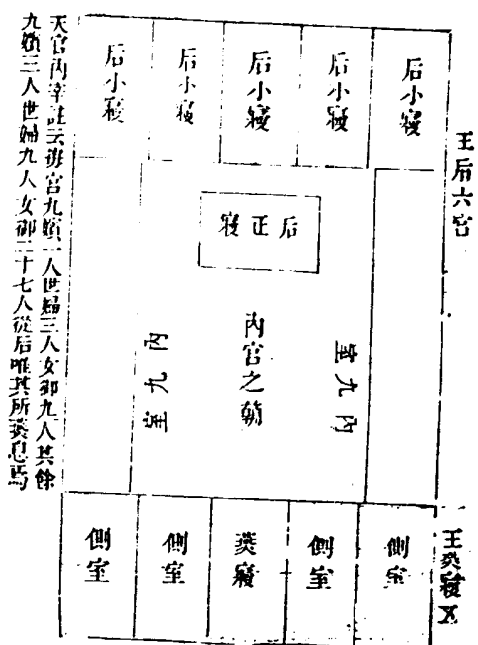 王后六宮
后小寢
后小寢
后小寢
后小寢
后小寢
后正寢
內九室
內官之朝
內九室
王燕寢
側室
側室
燕寢
側室
側室
天官內宰註云每宮九嬪一人世婦三人女御九人其餘
九嬪三人世婦九人女御二十七人從后唯其所燕息焉